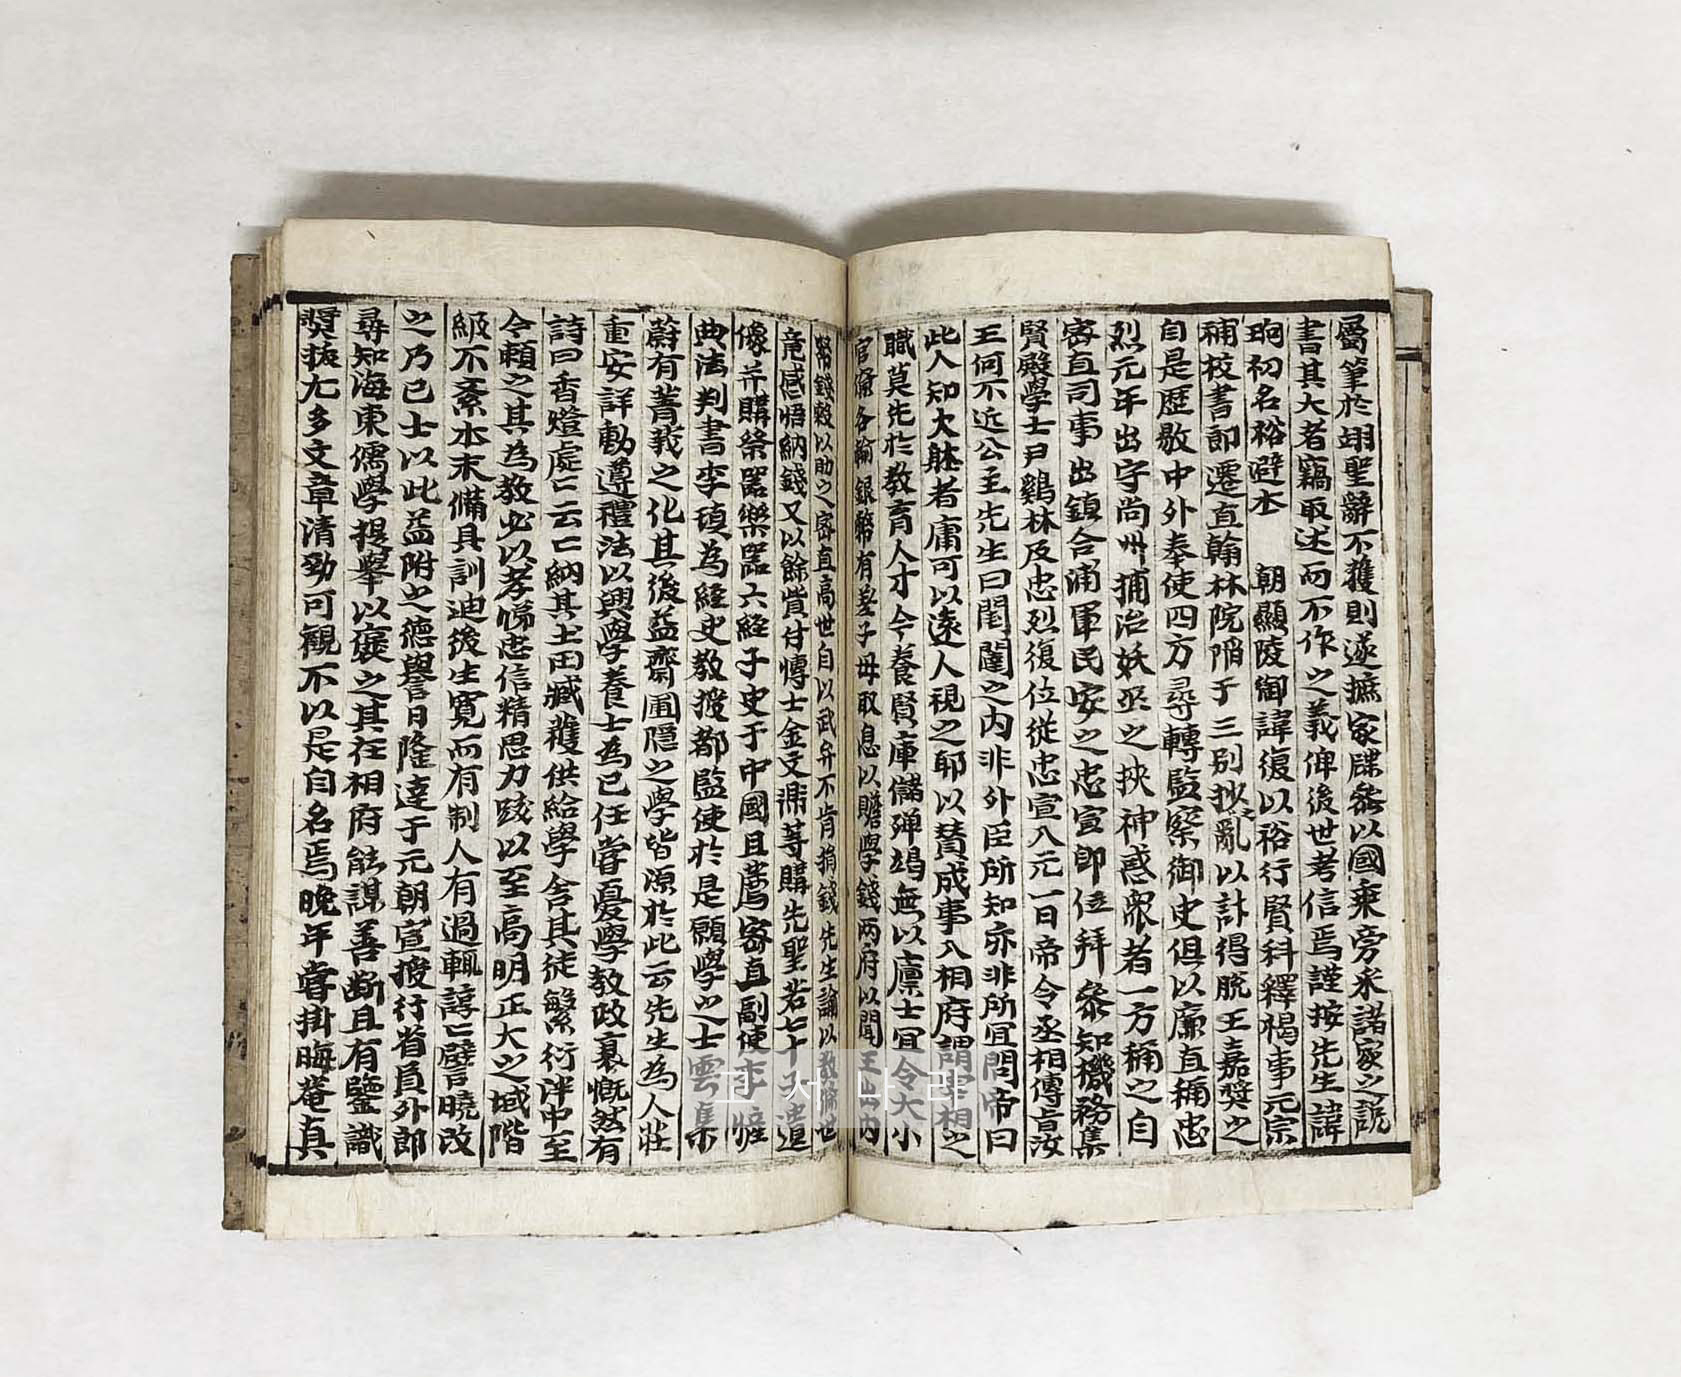 屬筆於翊聖辭不獲則遂摭家牒參以國乘旁采諸家之說
書其大者竊取述而不作之義俾後世考信焉謹按先生諱
珦初名裕避本 朝顯陵御諱復以裕行賢科釋褐事元宗
補校書郎遷直翰林院陷于三別抄亂以計得脫王嘉奬之
自是歷敭中外奉使四方尋轉監察御史俱以廉直稱忠
烈元年出守尚州捕治妖巫之挾神惑衆者一方稱之自
密直司事出鎮合浦軍民安之忠宣即位拜參知機務集
賢殿學士尹鷄林及忠烈復位從忠宣入元一日帝令丞相傳旨汝
王何不近公主先生曰閨闥之內非外臣所知亦非所宜問帝曰
此人知大體者庸可以遠人視之耶以賛成事入相府謂宰相之
職莫先於教育人才今養賢庫儲殫竭無以廩士宜令大小
官僚各諭銀幣有差子母取息以贍學錢兩府以聞王出內
帑錢穀以助之密直高世自以武弁不肯捐錢先生諭以教條世
竟感悟納錢又以餘貲付愽士金文鼎等購先聖若七十子遺
像并購祭器樂器六經子史于中國且薦密直副使李㦃
典法判書李瑱為經史教授都監使於是願學之士雲集
蔚有菁莪之化其後益齋圃隱之學皆源於此云先生為人莊
重安詳動遵禮法以興學養士為已任甞憂學教政衰慨然有
詩曰香燈處〻云〻納其土田臧獲供給學舍其徒繁衍泮中至
今賴之其為教必以孝悌忠信精思力踐以至高明正大之域階
級不紊本末備具訓迪後生寬而有制人有過輒諄〻譬曉改
之乃已士以此益附之德譽日隆達于元朝宣授行省員外郎
尋知海東儒學提舉以褒之其在相府能謀善斷且有鑒識
奬拔尤多文章清勁可觀不以是自名焉晚年甞掛晦菴真
고서나라